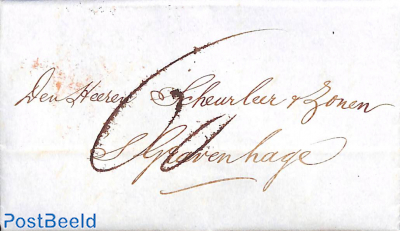 Den Heeren Scheurleer & Zonen
S Gravenhage
60
PostBeeld